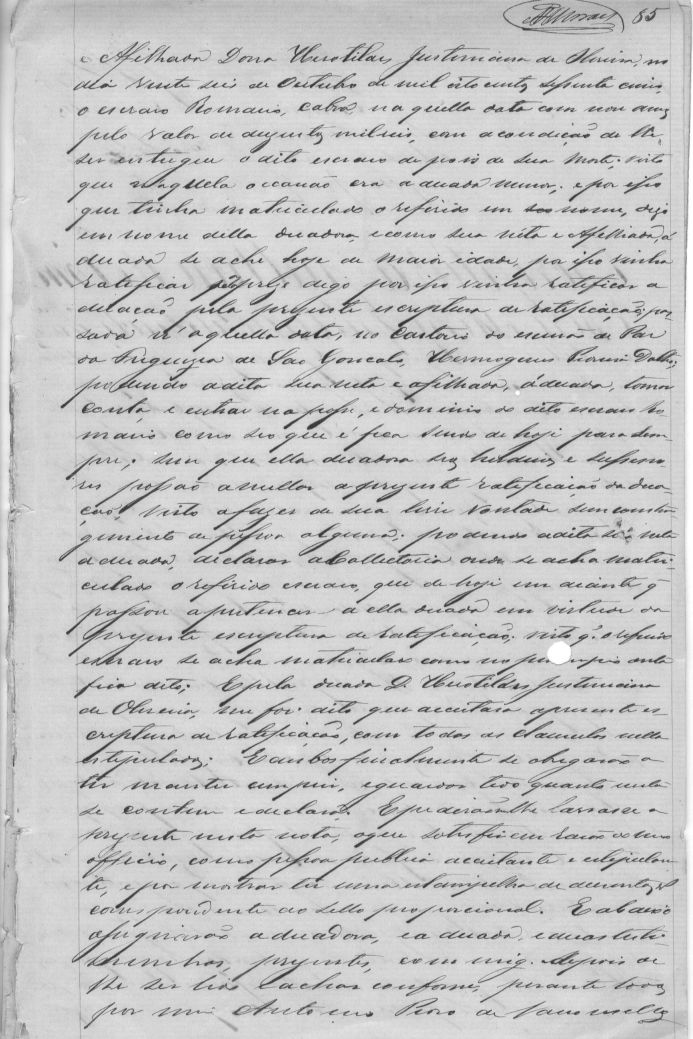 85
e Afilhada Dona Herotildes Justiniana de Oliveira, no
dia vinte seis de Outubro de mil oito centos setenta cinco,
o escravo Romario, Cabra, naquella data com nove annos
pelo valor de duzentos mil reis, com a condição de
ser entregue o dito escravo depois de sua morte; visto
que naquela occasião era a duada menor; e por isso
que tinha matriculado o referido em seo nome, digo
em nome della duadora, e como sua neta e Afilhada, á
duada se ache hoje de maior idade, por isso vinha
ratificar digo por isso vinha ratificar a
duação pela prezente escriptura de ratificação; pas
sada n'aquella data, no Cartorio do escrivão de Paz
da Freguezia de Sao Gonçalo, Hermogenes
podendo a dita sua neta e afilhada, á duada, tomar
conta, e entrar na posse, e dominio do dito escravo Ro-
mario como seo que é fica sendo de hoje para sem-
pre; sem que ella duadora seus herdeiros e sussesso-
res possão anullar a prezente ratificação da dua-
ção, visto a fazer de sua livre vontade sem constran
gimento de pessoa alguma; podendo a dita sua neta
a duada, declarar a Collectoria onde se acha matri-
culado o referido escravo, que de hoje em diante q
passou a pertencer a ella duada em virtude da
prezente escriptura de ratificação; visto q. o referido
escravo se acha matriculado como no principio
fica dito; E pela duada D. Herotildes Justiniana
de Oliveira, me foi dito que acceitava a prezente es-
criptura de ratificação, com todas as clausulas nella
estipuladas; E ambos finalmente se obrigarão a
ter manter cumprir, e guardar tudo quanto nesta
se contem e declara. E pedirão lhe lavrasse a
prezente nesta nota, o que satisfiz em razão do meo
officio, como pessoa publica aceitante e estipulan-
te, e por mostrar ter uma estampilha de duzentos rs
correspondente ao sello proporcional. E abaixo
assignarão a duadora, e a duada, e duas teste-
munhas, prezentes, commigo depois de
lhe ser lida e achar conforme, perante todos
por mim Antonio de Vasconcellos